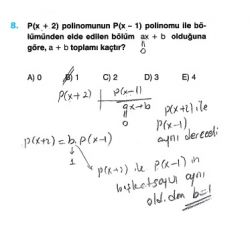 8. P(x + 2) polinomunun P(x – 1) polinomu ile bö-
lümünden elde edilen bölüm ax + b olduğuna
göre, a + b toplamı kaçtır?
0
A) 0 B) 1 C) 2 D) 3 E) 4
P(x+2) P(x-1)
ax+b
0
P(x+2) ile
P(x-1)
aynı dereceli
P(x+2) = b. P(x-1)
1
P(x+2) ile P(x-1) in
başkatsayı aynı
old. den b=1